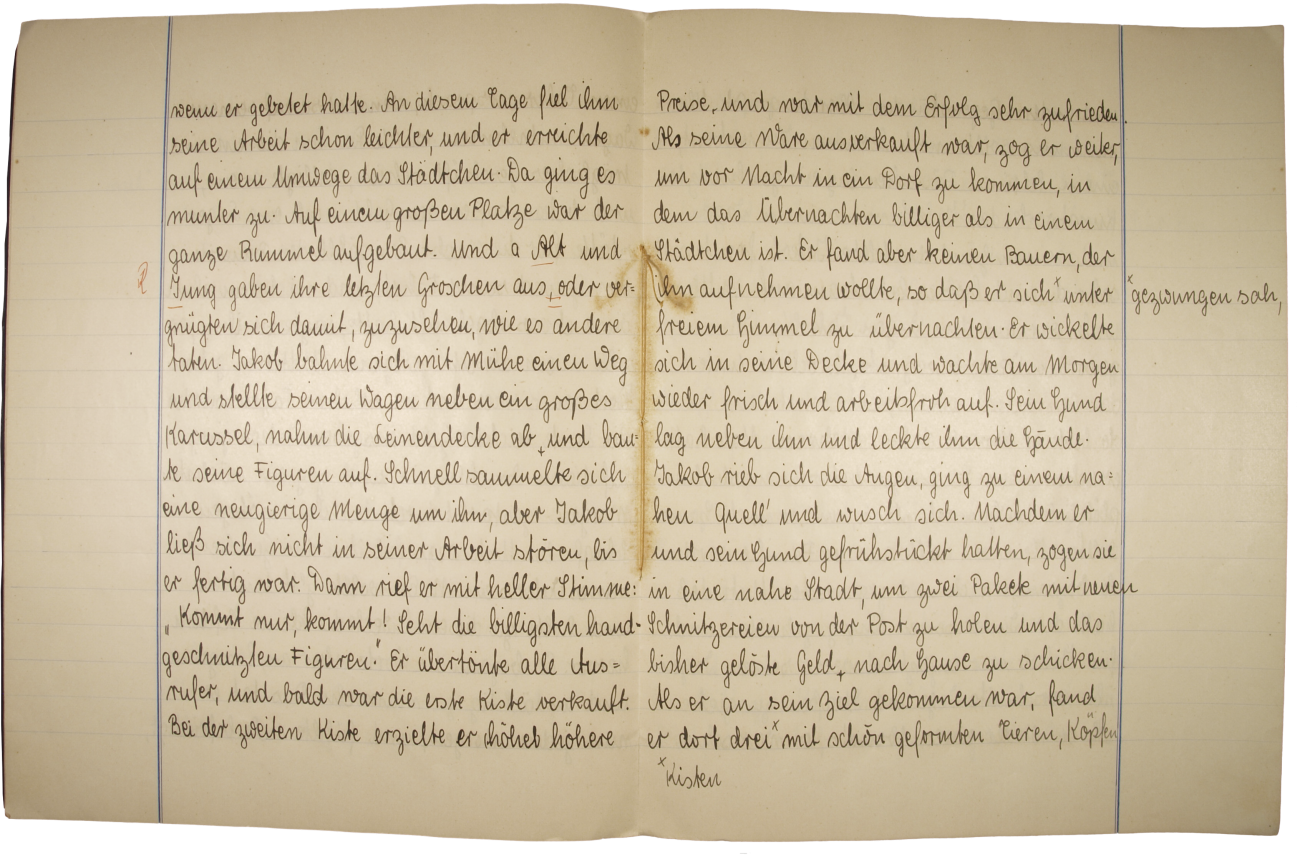 wenn er gebetet hatte. An diesem Tage fiel ihm
seine Arbeit schon leichter, und er erreichte
auf einem Umwege das Städtchen. Da ging es
munter zu. Auf einem großen Platze war der
ganze Rummel aufgebaut. Und a Alt und
Jung gaben ihre letzten Groschen aus, oder ver=
gnügten sich damit, zuzusehen, wie es andere
taten. Jakob bahnte sich mit Mühe einen Weg
und stellte seinen Wagen neben ein großes
Karussel, nahm die Leinendecke ab, und bau=
te seine Figuren auf. Schnell sammelte sich
eine neugierige Menge um ihn, aber Jakob
ließ sich nicht in seiner Arbeit stören, bis
er fertig war. Dann rief er mit heller Stimme:
„Kommt nur, kommt! Seht die billigsten hand-
geschnitzten Figuren." Er übertönte alle Aus=
rufer, und bald war die erste Kiste verkauft.
Bei der zweiten Kiste erzielte er höhere
Preise, und war mit dem Erfolg sehr zufrieden.
Als seine Ware ausverkauft war, zog er weiter,
um vor Nacht in ein Dorf zu kommen, in
dem das Übernachten billiger als in einem
Städtchen ist. Er fand aber keinen Bauern, der
ihn aufnehmen wollte, so daß er sich x unter
x gezwungen sah,
freiem Himmel zu übernachten. Er wickelte
sich in seine Decke und wachte am Morgen
wieder frisch und arbeitsfroh auf. Sein Hund
lag neben ihm und leckte ihm die Hände.
Jakob rieb sich die Augen, ging zu einem na=
hen Quell' und wusch sich. Nachdem er
und sein Hund gefrühstückt hatten, zogen sie
in eine nahe Stadt, um zwei Pakete mit neuen
Schnitzereien von der Post zu holen und das
bisher gelöste Geld, nach Hause zu schicken.
Als er an sein Ziel gekommen war, fand
er dort drei x mit schön geformten Tieren, Köpfen
x Kisten